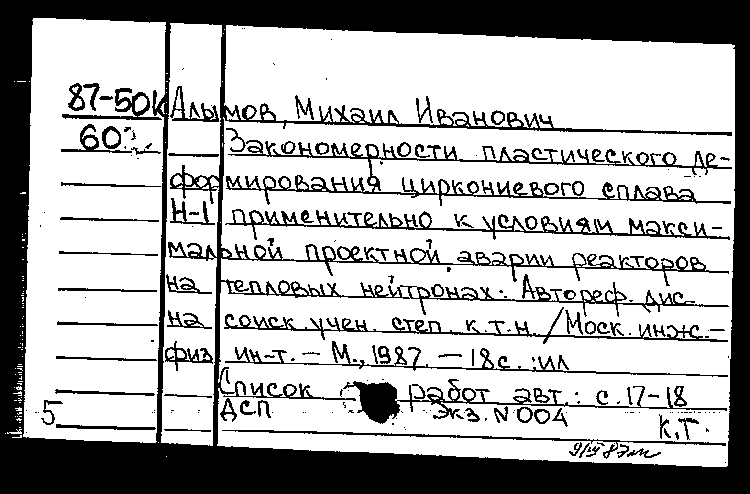 87-50К Алымов, Михаил Иванович
60
Закономерности пластического де-
формирования циркониевого сплава
Н-1 применительно к условиям макси-
мальной проектной аварии реакторов
на тепловых нейтронах: Автореф. дис
на соиск. учен. степ. к.т.н. / Моск. инж.-
физ ин-т. - М., 1987. - 18с. : ил
Список работ авт.: с. 17-18
ДСП Экз. N 004
5 К.Г.